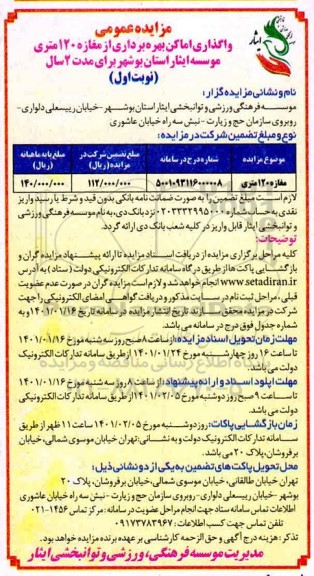 مزایده عمومی
واگذاری اماکن بهره برداری از مغازه ۱۲۰ متری
موسسه ایثار استان بوشهر برای مدت ۲ سال
(نوبت اول)
ایثار
نام و نشانی مزایده گزار:
موسسه فرهنگی ورزشی و توانبخشی ایثار استان بوشهر - خیابان رییسعلی دلواری-
روبروی سازمان حج و زیارت - نبش سه راه خیابان عاشوری
نوع و مبلغ تضمین شرکت در مزایده:
موضوع مزایده شماره درج در سامانه مبلغ تضمین شرکت در مزایده (ریال) مبلغ پایه ماهیانه (ریال)
مغازه ۱۲۰ متری ۵۰۰۱۰۹۳۱۱۶۰۰۰۰۰۸ ۱۱۲/۰۰۰/۰۰۰ ۱۴۰/۰۰۰/۰۰۰
لازم است مبلغ تضمین را به صورت ضمانت نامه بانکی بدون قید و شرط یا رسید واریز
نقدی به حساب شماره ۰۲۰۳۳۳۲۹۹۵۰۰۰ نزد بانک دی، به نام موسسه فرهنگی ورزشی
و توانبخشی ایثار قابل واریز در کلیه شعب بانک دی ارائه گردد.
توضیحات:
کلیه مراحل برگزاری مزایده از دریافت اسناد مزایده تا ارائه پیشنهاد مزایده گران و
بازگشایی پاکت ها از طریق درگاه سامانه تدارکات الکترونیکی دولت (ستاد) به آدرس
www.setadiran.ir انجام خواهد شد و لازم است مزایده گران در صورت عدم عضویت
قبلی، مراحل ثبت نام در سایت مذکور و دریافت گواهی امضای الکترونیکی را جهت
شرکت در مزایده محقق سازند تاریخ انتشار مزایده در سامانه تاریخ ۱۴۰۱/۰۱/۱۶ و به
شماره جدول فوق درج در سامانه می باشد.
مهلت زمان تحویل اسناد مزایده: از ساعت ۸ صبح روز سه شنبه مورخ ۱۴۰۱/۰۱/۱۶
تا ساعت ۱۶ روز چهارشنبه مورخ ۱۴۰۱/۰۱/۲۴ از طریق سامانه تدارکات الکترونیک
دولت می باشد.
مهلت اپلود اسناد و ارائه پیشنهاد: از ساعت ۸ روز سه شنبه مورخ ۱۴۰۱/۰۱/۱۶
تا ساعت ۹ صبح روز دوشنبه مورخ ۱۴۰۱/۰۲/۰۵ از طریق سامانه تدارکات الکترونیک
دولت می باشد.
زمان بازگشایی پاکات: روز دوشنبه مورخ ۱۴۰۱/۰۲/۰۵ ساعت ۱۱ ظهر از طریق
سامانه تدارکات الکترونیک دولت و به نشانی: تهران خیابان موسوی شمالی، خیابان
برفروشان، پلاک ۲۰ می باشد.
محل تحویل پاکت های تضمین به یکی از دو نشانی ذیل:
تهران خیابان طالقانی، خیابان موسوی شمالی، خیابان برفروشان، پلاک ۲۰
بوشهر - خیابان رییسعلی دلواری - روبروی سازمان حج و زیارت - نبش سه راه خیابان عاشوری
اطلاعات تماس سامانه ستاد جهت انجام مراحل عضویت در سامانه: مرکز تماس ۱۴۵۶-۰۲۱
تلفن تماس جهت کسب اطلاعات: ۰۹۱۷۳۷۸۳۹۶۷
تذکر: هزینه درج آگهی و حق الزحمه کارشناسی بر عهده برنده مزایده خواهد بود.
مدیریت موسسه فرهنگی، ورزشی و توانبخشی ایثار